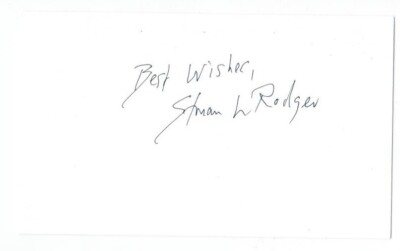 Best Wishes,
Stuart L Rodgers